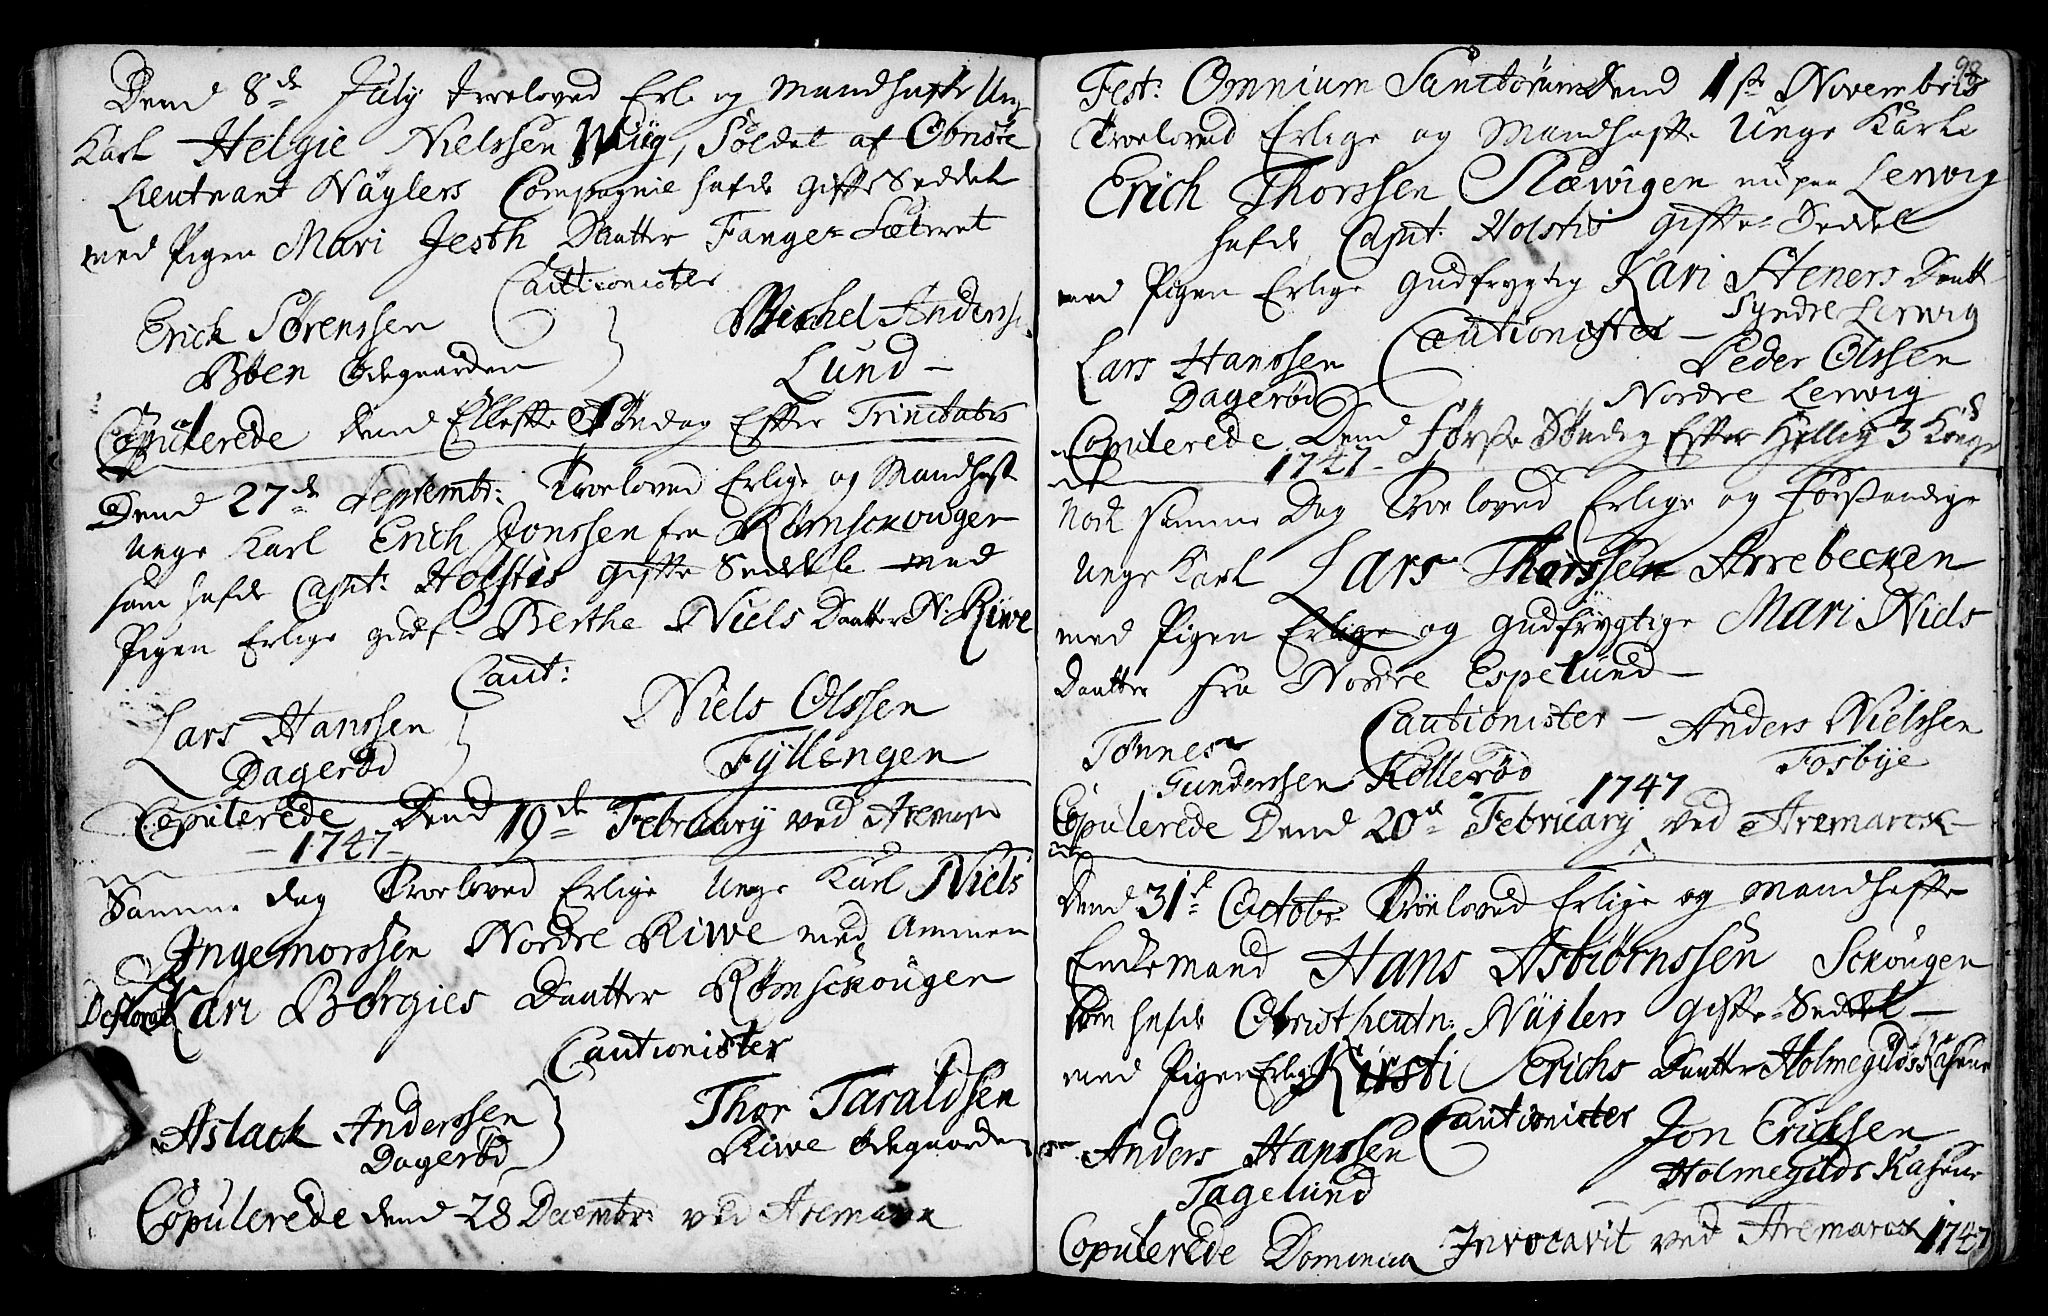 Dend 8de July Troeloved Erl: og Mandhafte Ung
Karl Helgie Nielssen Wiig, Soldat af Obriste
Lieutnant Näglers Compagnie hafde Gifte Seddel
med Pigen Mari Jesth Daatter Fange-Sæteret
Cautionister
Erick Sörenssen
Böen Ödegaarden
Michel Anderss:
Lund
Copulerede Dend Ellefte Söndag Efter Trinitatis
Dend 27de Septembr: Troeloved Erlige og Mandhaft
unge Karl Erich Jonssen fra Römsckougen
som hafde Capt: Holstes Gifte Seddel med
Pigen Erlige gudf: Berthe Niels Daatter N: Riwe
Caut:
Lars Hanssen
Dageröd
Niels Olssen
Fyllengen
Copulerede Dend 19de February ved Aremark
1747
Samme dag Troeloved Erlige Unge Karl Niels
Ingemorssen Nordre Riwe med Ammen
Deflorat Kari Börgies Daatter Römsckougen
Cautionister
Aslack Anderssen
Dageröd
Thor Taraldsen
Riwe Ödegaarden
Copulerede dend 28 Decembr: ved Aremark
98
Fest: Omnium Sanctorum Dend 1ste Novembris
Troeloved Erlige og Mandhafte Unge Karl
Erich Thorssen Slæwigen nu paa Lerwig
hafde Capt: Holstes Gifte-Seddel
med Pigen Erlige Gudfrygtig Kari Steners Daatt
Syndre Lerwig
Cautionister
Lars Hanssen
Dageröd
Peder Olssen
Nordre Lerwig
Copulerede Dend Förste Söndag Efter Hellig 3 Konge
1747
Nock samme Dag Troeloved Erlige og Forstandige
Unge Karl Lars Thorssen Arrebecken
med Pigen Erlige og Gudfrygtige Mari Niels
Daatter fra Nordre Espelund
Cautionister
Tönnes
Gunderssen Kölleröd
Anders Nielssen
Fosbye
1747
Copulerede Dend 20de February ved Aremarck
Dend 31te Octobr: Troeloved Erlige og Mandhafte
Enckemand Hans Asbiörnssen Sckougen
som hafde Obristlieutn: Näglers Gifte-Seddel
med Pigen Erlig Kirsti Erichs Daatter Holmegilds Kasene
Cautionister
Anders Hanssen
Tagelund
Jon Erichsen
Holmegilds Kasene
Copulerede Dominica Invocavit ved Aremarck 1747